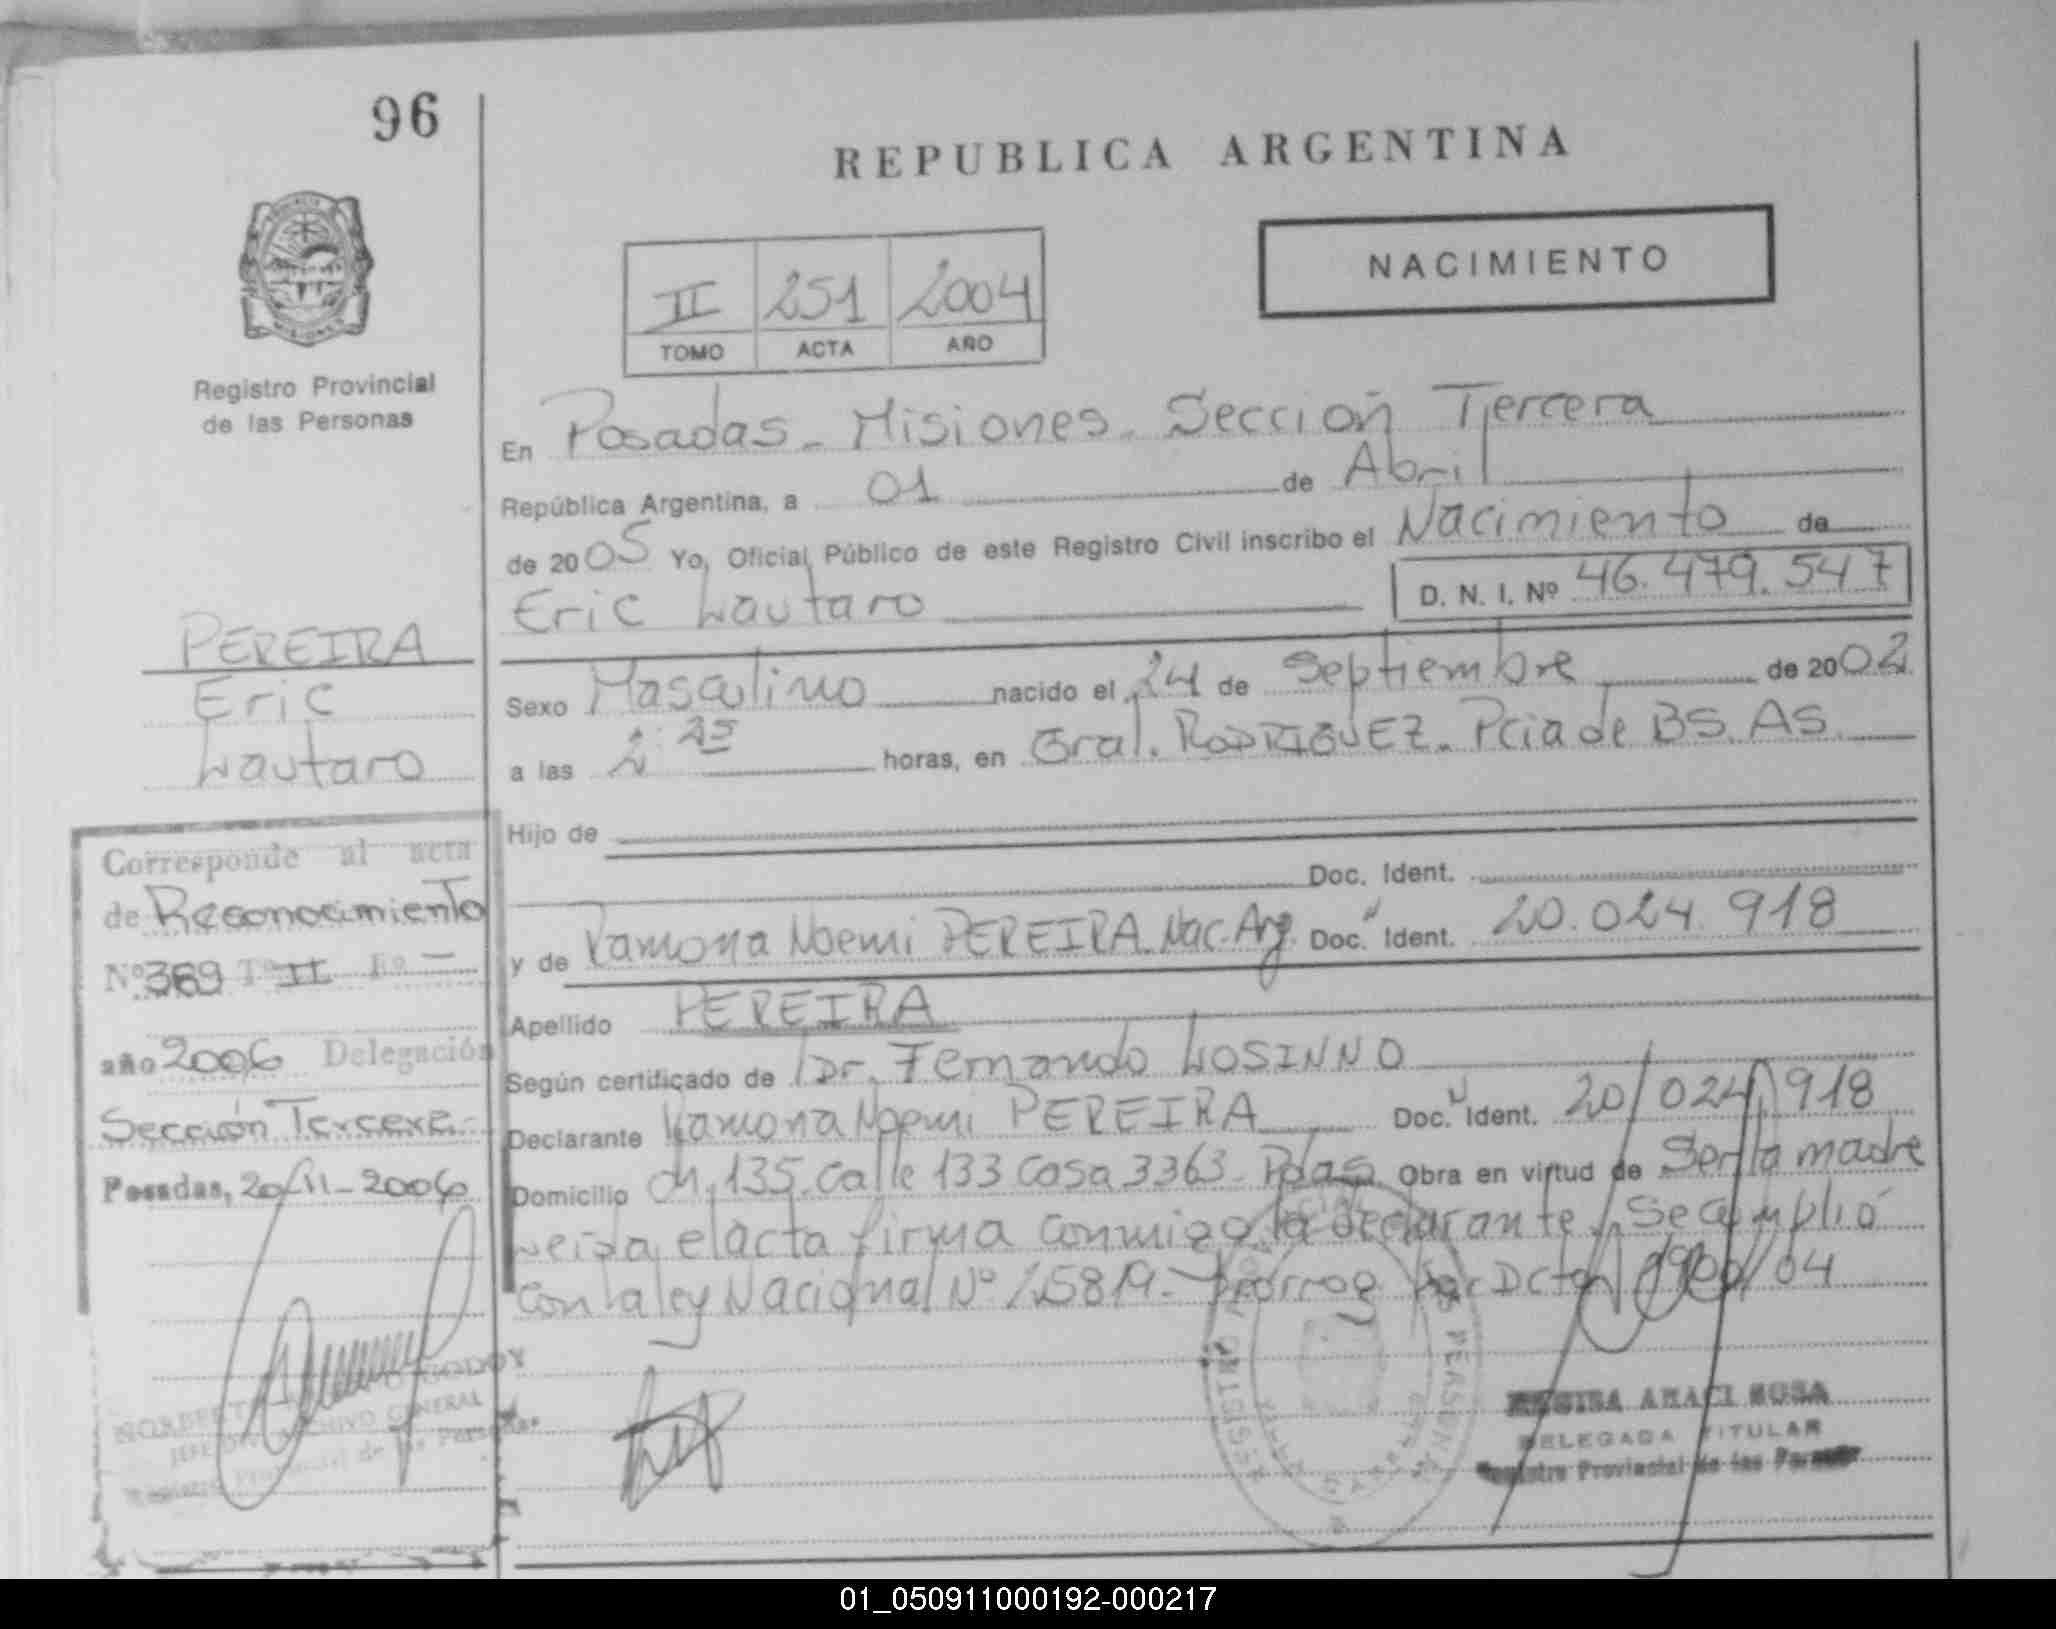 96
REPUBLICA ARGENTINA
NACIMIENTO
II 251 2004
TOMO ACTA AÑO
Registro Provincial
de las Personas
En Posadas - Misiones - Sección Tercera
República Argentina, a 01 de Abril
de 2005 Yo, Oficial Público de este Registro Civil inscribo el Nacimiento de
Eric Lautaro
D. N. I. Nº 46.479.547
PEREIRA
Eric
Lautaro
Sexo Masculino nacido el 24 de Septiembre de 2002
a las 2: horas, en Gral. RODRIGUEZ - Pcia de BS. AS.
Hijo de
Doc. Ident.
y de Ramona Noemi PEREIRA Nac. Arg. Doc. Ident. 20.024.918
Apellido PEREIRA
Según certificado de Dr. Fernando LOSINNO
Declarante Ramona Noemi PEREIRA Doc. Ident. 20/024.918
Domicilio Ch. 135. Calle 133 Casa 3363 - Pdas Obra en virtud de Ser la madre
Leida el acta firma conmigo la declarante. Se cumplió
con la ley Nacional Nº 25819 - prorrog por Dcto /04
Corresponde al acta
de Reconocimiento
Nº 369 Tº II Fº -
año 2006 Delegación
Sección Tercera -
Posadas, 20-11-2006
GODOY
JEFE DIV. ARCHIVO GENERAL
Registro Provincial de las Personas
ARACI SOSA
DELEGADA TITULAR
Registro Provincial de las Personas
01_050911000192-000217